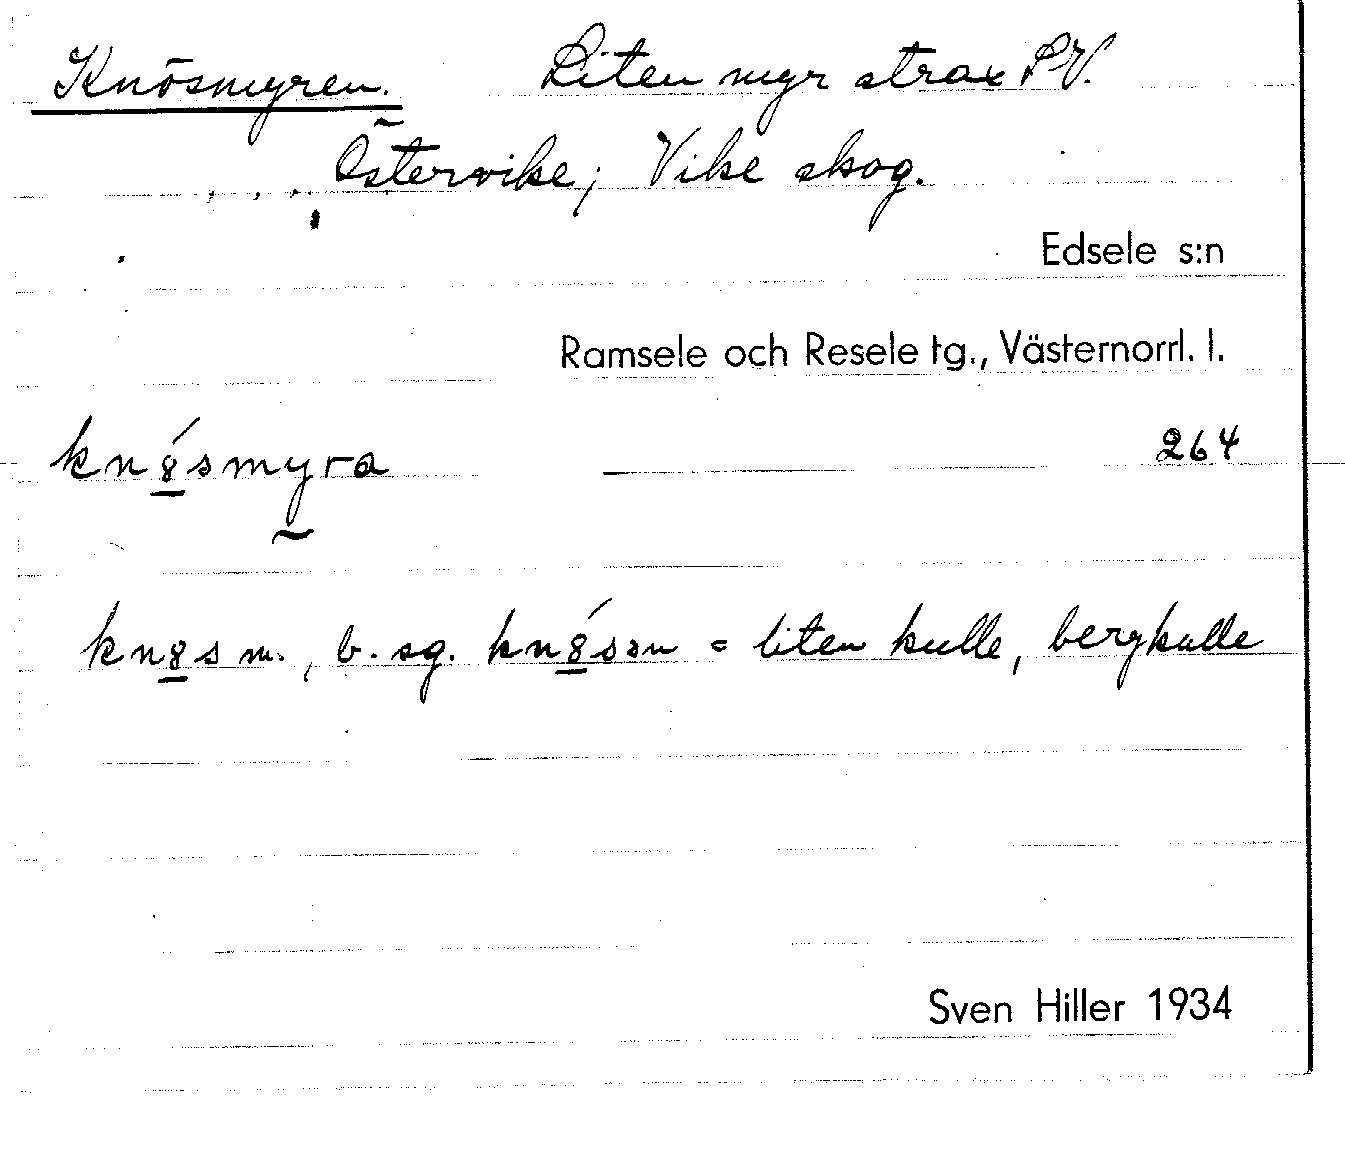 Knösmyren. Liten myr strax SV.
Östervike; Vike skog.
Edsele s:n
Ramsele och Resele tg., Västernorrl. l.
kn8́smyra 264
kn8s m., b. sg. kn8́sən = liten kulle, bergkulle
Sven Hiller 1934